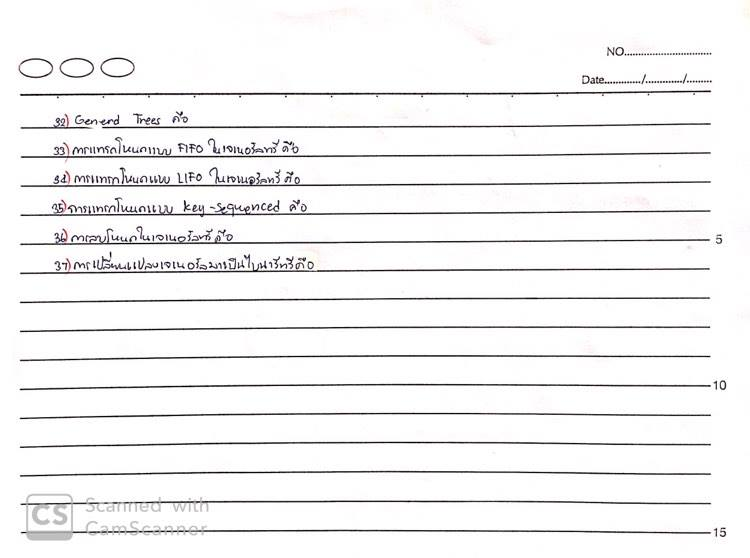 NO.
Date / /
32) General Trees คือ
33) การแทรกโหนดแบบ FIFO ในเจเนอรัลทรี คือ
34) การแทรกโหนดแบบ LIFO ในเจเนอรัลทรี คือ
35) การแทรกโหนดแบบ key-sequenced คือ
36) การลบโหนดในเจเนอรัลทรี คือ
5
37) การเปลี่ยนแปลงเจเนอรัลมาเป็นไบนารีทรีคือ
10
CS Scanned with
CamScanner
15